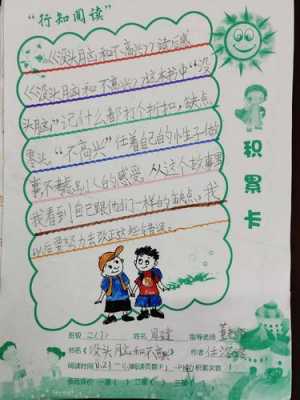 “行知阅读”
《没头脑和不高兴》读后感
《没头脑和不高兴》这本书中“没
头脑”记什么都打个折扣，缺点
零头，“不高兴”任着自己的小性子做
事不考虑别人的感受，从这个故事里
我看到自己跟他们一样的缺点，我
以后要努力去改正
积累卡
班级 二(1) 姓名 指导老师
书名《没头脑和不高兴》 作者 任溶溶
阅读时间 阅读页数 积累次数